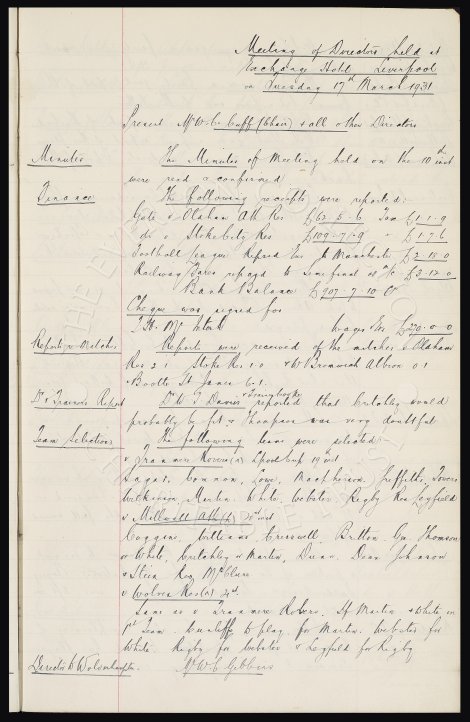 Meeting of Directors held at
Exchange Hotel Liverpool
on Tuesday 17th March 1931
Present Mr W. C. Cuff (Chair) & all other Directors
Minutes The Minutes of Meeting held on the 10th inst
were read & confirmed
Finance The following receipts were reported:
Gate v Oldham Ath Res £62.5.6 Tax £1.1.9
do v Stoke City Res £109.7.9 " £1.7.6
Football League Refund to Manchester £2.18.0
Railway Fares repayd to Semi final a/c £3.12.0
Bank Balance £907.7.10 Cr
Cheque was signed for
Wages &c £270.0.0
Reports v Matches Reports were received of the matches v Oldham
Res 2.1 Stoke Res 1.0 & West Bromwich Albion 0.1
Bootle St James 6.1.
Dr & Trainers Report Dr W. J. Davies reported that Critchley would
probably be fit & Thompson was very doubtful
Team Selections The following teams were selected:
v Tranmere Rovers (a) L'pool Cup 19th inst
Sagar. Common, Lowe, MacPherson. Griffiths, Towers
Wilkinson, Martin. White. Webster. Rigby Res Leyfield
v Millwall Ath (h) 21st inst
Coggins, Williams Cresswell, Britton. Thomson
v White, Critchley v Martin, Dunn. Dean Johnson
v Stein Res McClure
v Wolves Res (a) 21st.
Same as v Tranmere Rovers. If Martin & White in
1st Team. Cunliffe to play for Martin. Webster for
White. Rigby for Webster & Leyfield for Rigby
Director to Wolverhampton Mr W. C. Gibbins